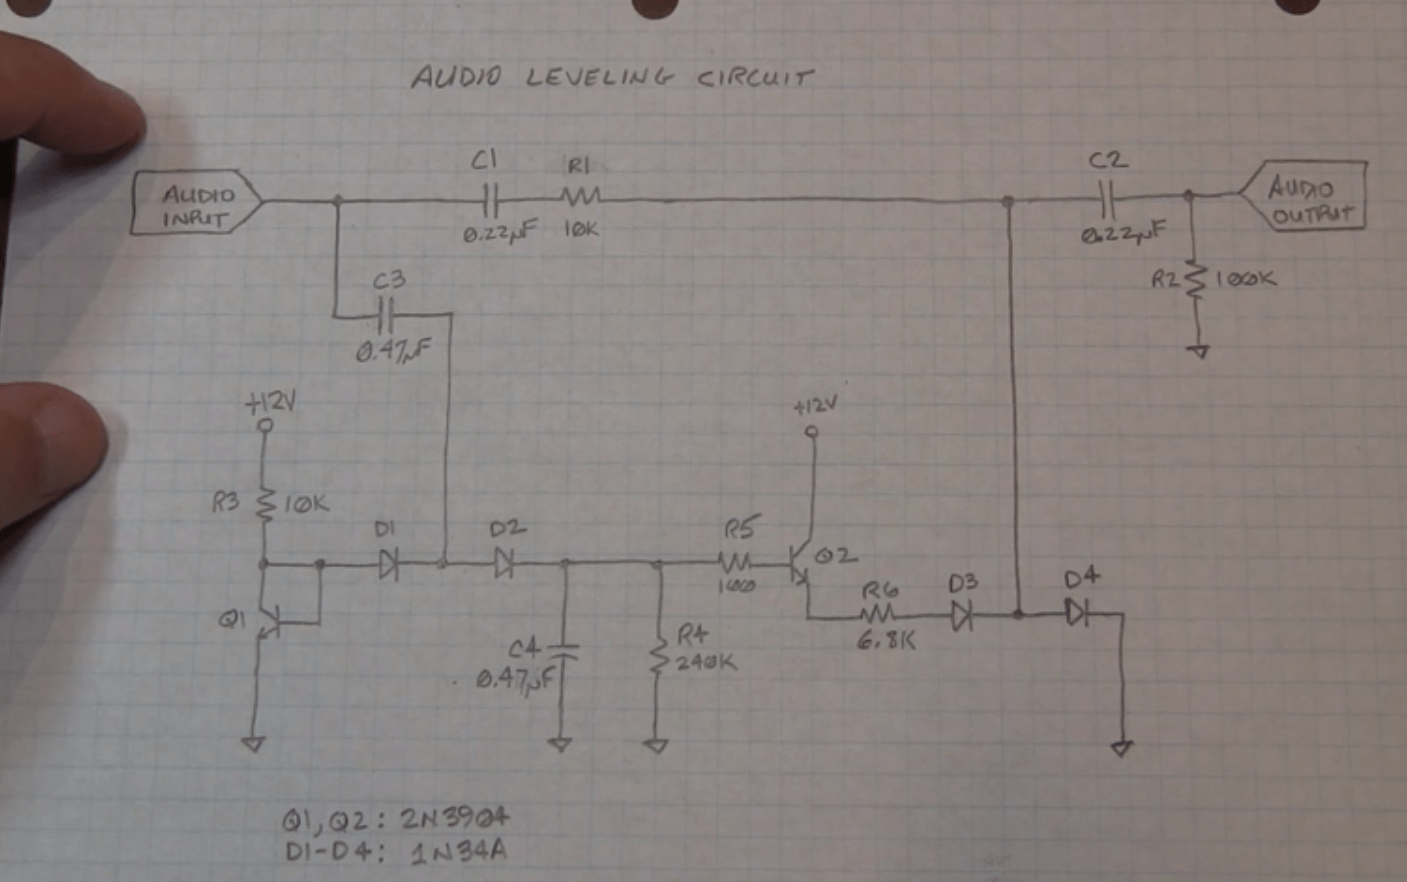 AUDIO LEVELING CIRCUIT
C1
R1
C2
AUDIO
INPUT
AUDIO
OUTPUT
0.22µF
10K
0.22µF
R2
100K
C3
0.47µF
+12V
+12V
R3
10K
D1
D2
R5
Q2
100
R6
D3
D4
Q1
6.8K
C4
R4
0.47µF
240K
Q1, Q2: 2N3904
D1-D4: 1N34A